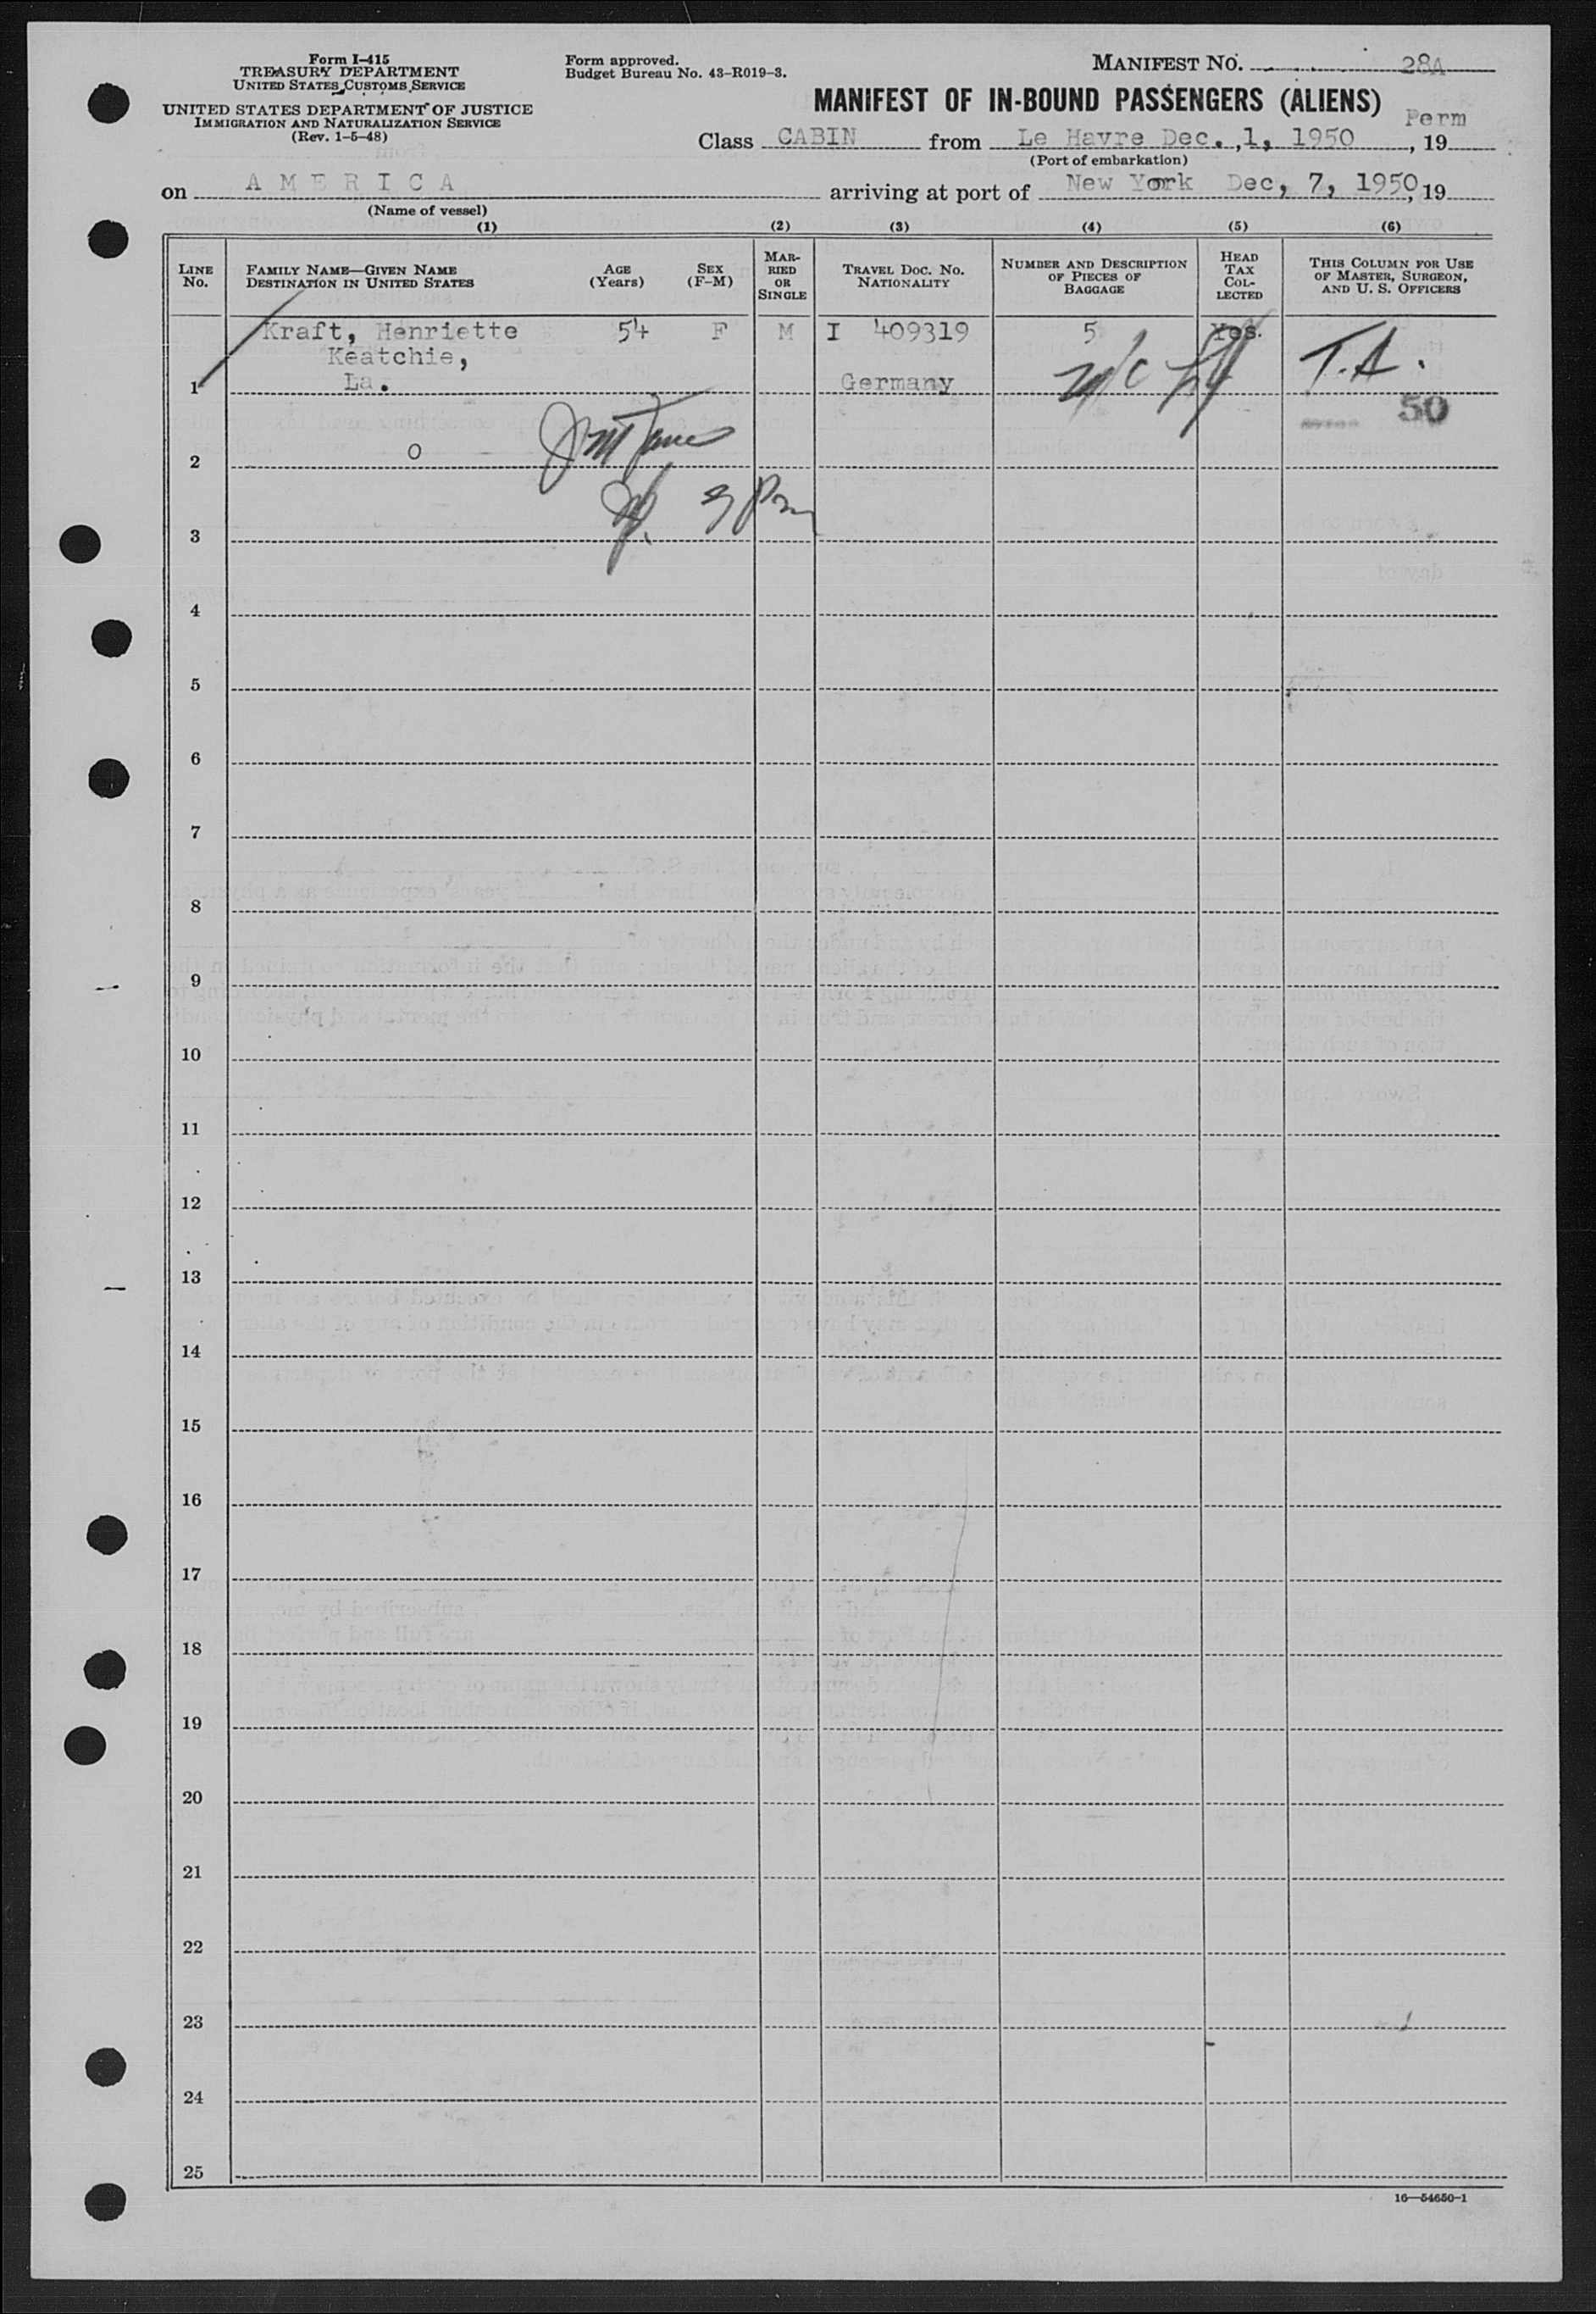 Form I-415
TREASURY DEPARTMENT
UNITED STATES CUSTOMS SERVICE
UNITED STATES DEPARTMENT OF JUSTICE
IMMIGRATION AND NATURALIZATION SERVICE
(Rev. 1-5-48)
Form approved.
Budget Bureau No. 43-R019-3.
MANIFEST NO. 28A
MANIFEST OF IN-BOUND PASSENGERS (ALIENS)
Perm
Class CABIN from Le Havre Dec. ,1, 1950, 19
(Port of embarkation)
on A M E R I C A arriving at port of New York Dec, 7, 1950, 19
(Name of vessel)
(1) (2) (3) (4) (5) (6)
LINE No.
FAMILY NAME—GIVEN NAME
DESTINATION IN UNITED STATES
AGE (Years)
SEX (F-M)
MARRIED OR SINGLE
TRAVEL DOC. NO. NATIONALITY
NUMBER AND DESCRIPTION OF PIECES OF BAGGAGE
HEAD TAX COLLECTED
THIS COLUMN FOR USE OF MASTER, SURGEON, AND U. S. OFFICERS
Kraft, Henriette 54 F M I 409319 5 Yes.
Keatchie, T.A.
1 La. Germany
50
2 o
3
4
5
6
7
8
9
10
11
12
13
14
15
16
17
18
19
20
21
22
23
24
25
16—54650-1